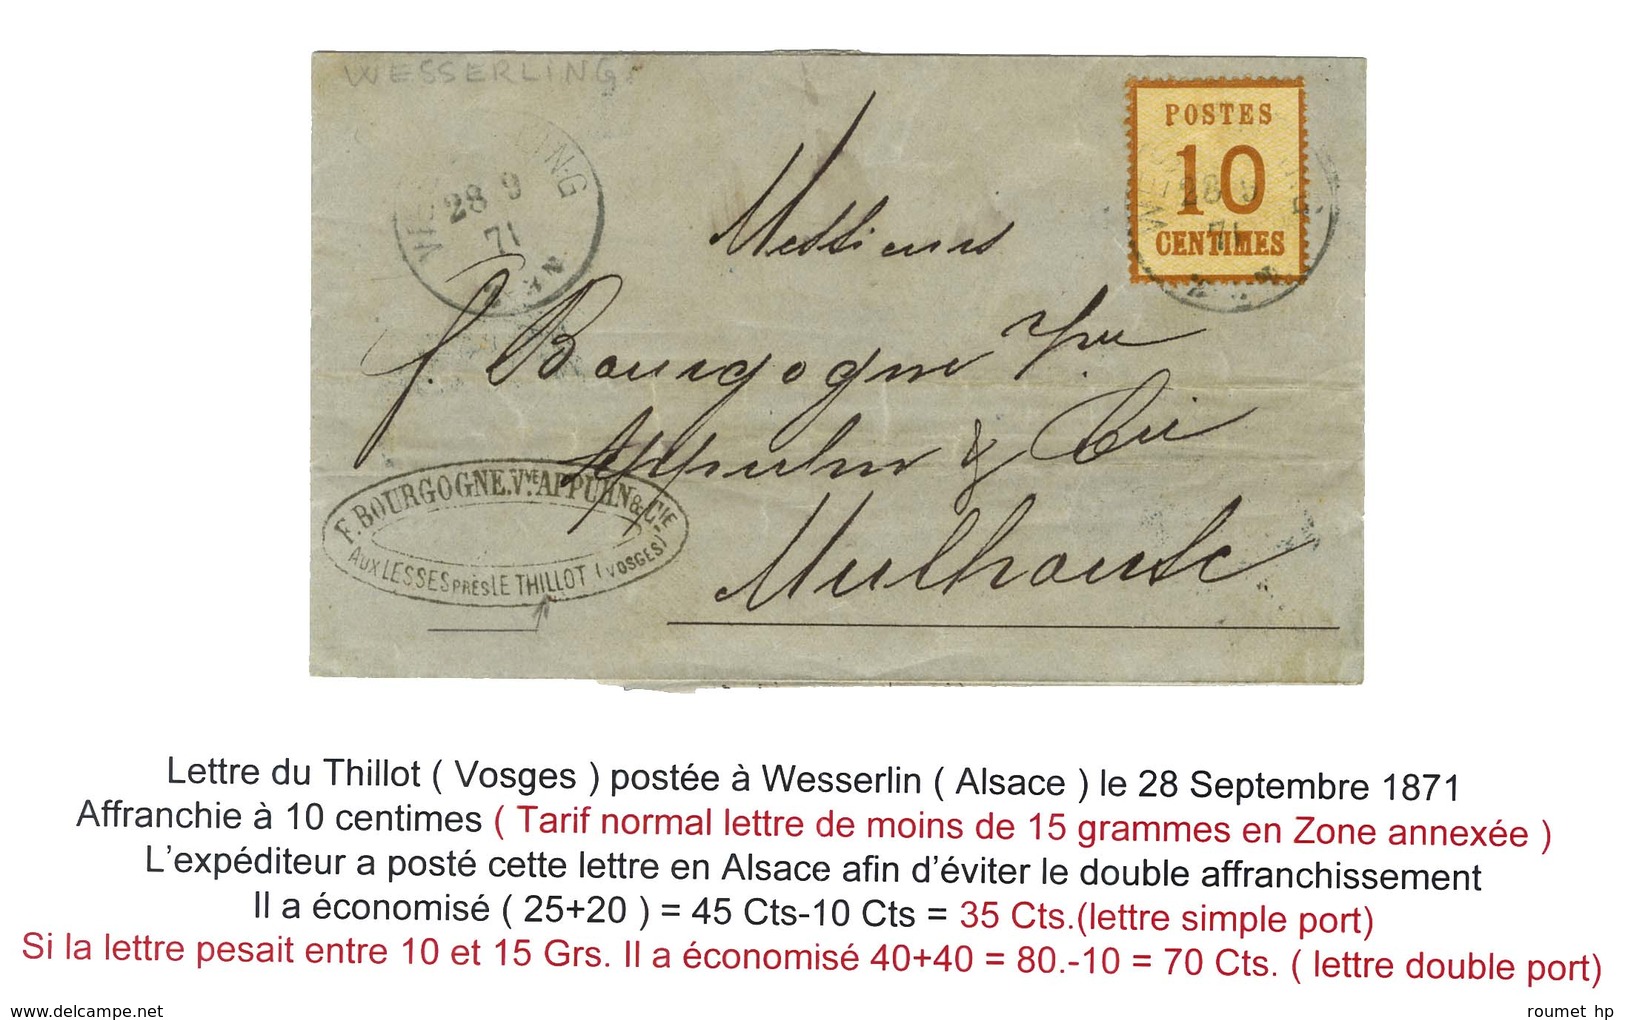 WESSERLING
POSTES
10
CENTIMES
28 9
71
28 9
71
Messieurs
f. Bourgogne Vve
Appuhn & Cie
Mulhouse
F. BOURGOGNE. Vve. APPUHN & CIE
AUX LESSES PRES LE THILLOT (VOSGES)
Lettre du Thillot ( Vosges ) postée à Wesserlin ( Alsace ) le 28 Septembre 1871
Affranchie à 10 centimes ( Tarif normal lettre de moins de 15 grammes en Zone annexée )
L'expéditeur a posté cette lettre en Alsace afin d'éviter le double affranchissement
Il a économisé ( 25+20 ) = 45 Cts-10 Cts = 35 Cts.(lettre simple port)
Si la lettre pesait entre 10 et 15 Grs. Il a économisé 40+40 = 80.-10 = 70 Cts. ( lettre double port)
delcampe.net
roumet hp